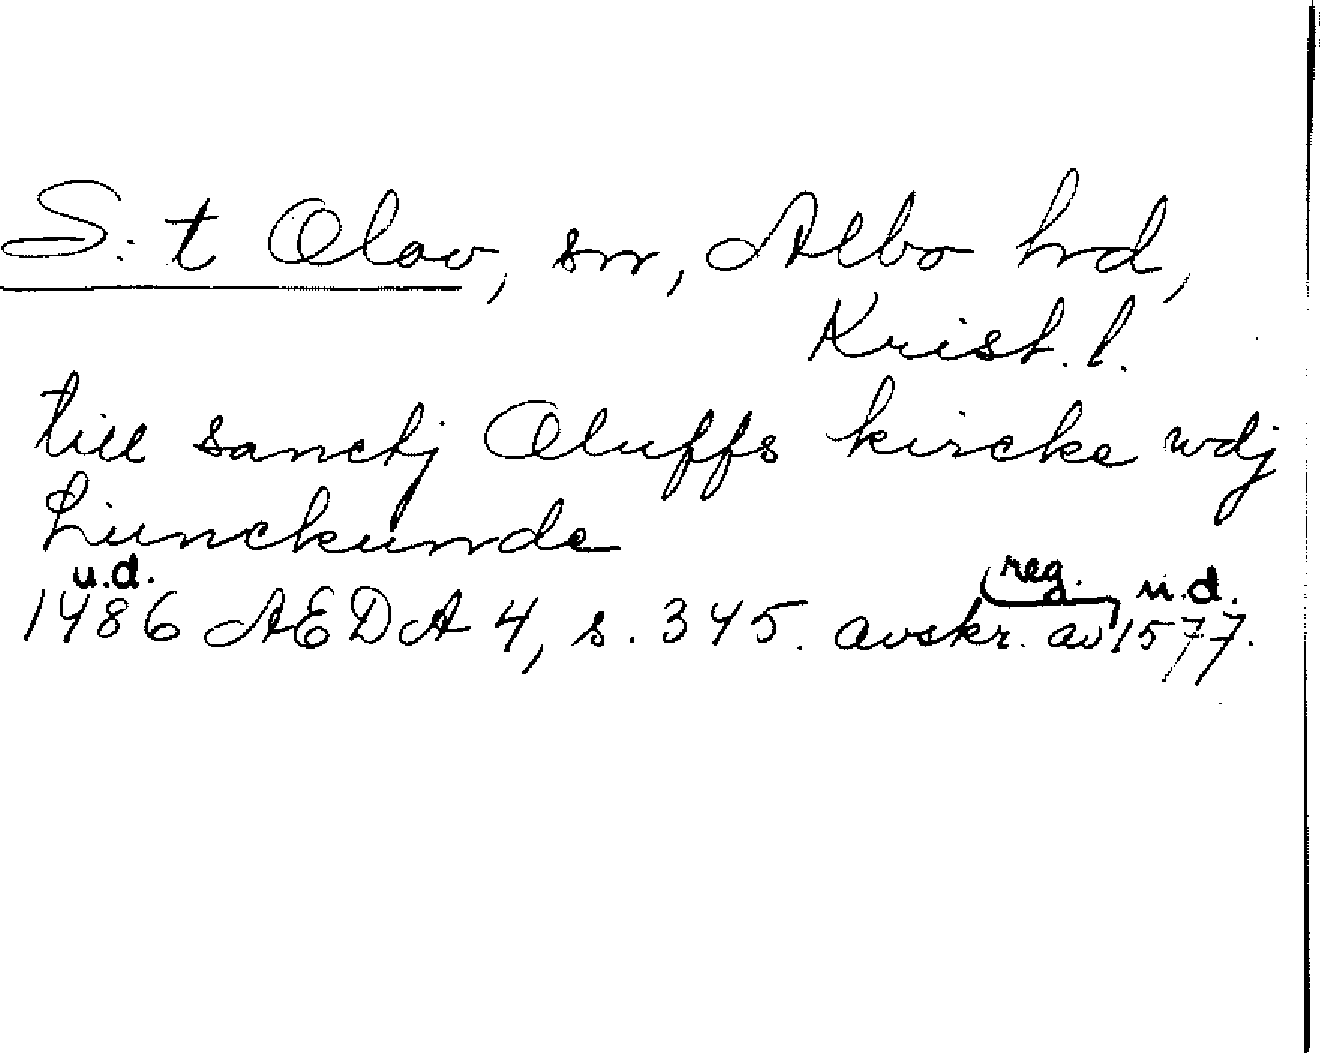 S:t Olav, sn, Albo hd,
Krist. l.
till sanctj Oluffs kircke wdj
Lunckunde
u.d. reg. u.d.
1486 AEDA 4, s. 345. avskr. av 1577.